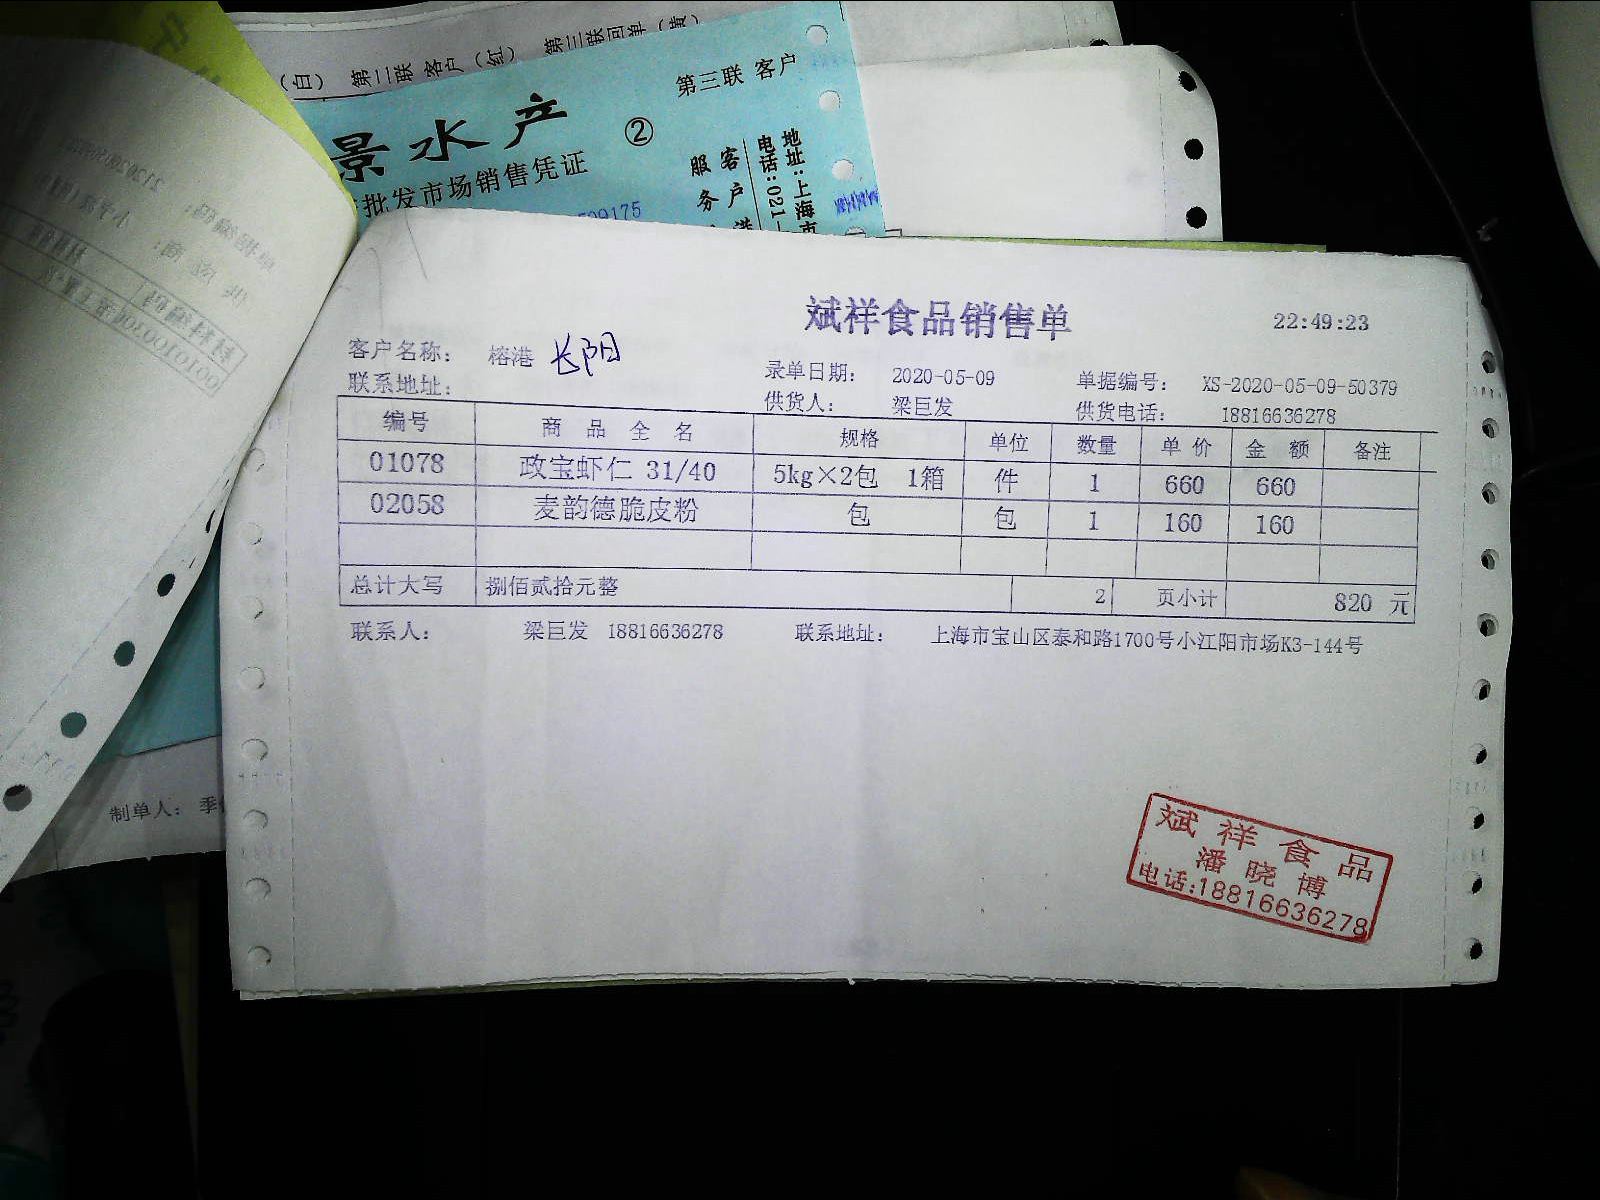 （白） 第二联 客户（红） 第三联回单（黄）
第三联 客户
景水产 ②
批发市场销售凭证
地址:上海市
电话:021-
客户
服务
斌祥食品销售单
22:49:23
客户名称： 榕港 长阳
录单日期： 2020-05-09 单据编号： XS-2020-05-09-50379
联系地址：
供货人： 梁巨发 供货电话： 18816636278
编号 商品全名 规格 单位 数量 单价 金额 备注
01078 政宝虾仁 31/40 5kg×2包 1箱 件 1 660 660
02058 麦韵德脆皮粉 包 包 1 160 160
总计大写 捌佰贰拾元整 2 页小计 820 元
联系人： 梁巨发 18816636278 联系地址： 上海市宝山区泰和路1700号小江阳市场K3-144号
制单人： 季
斌祥食品
潘晓博
电话:18816636278